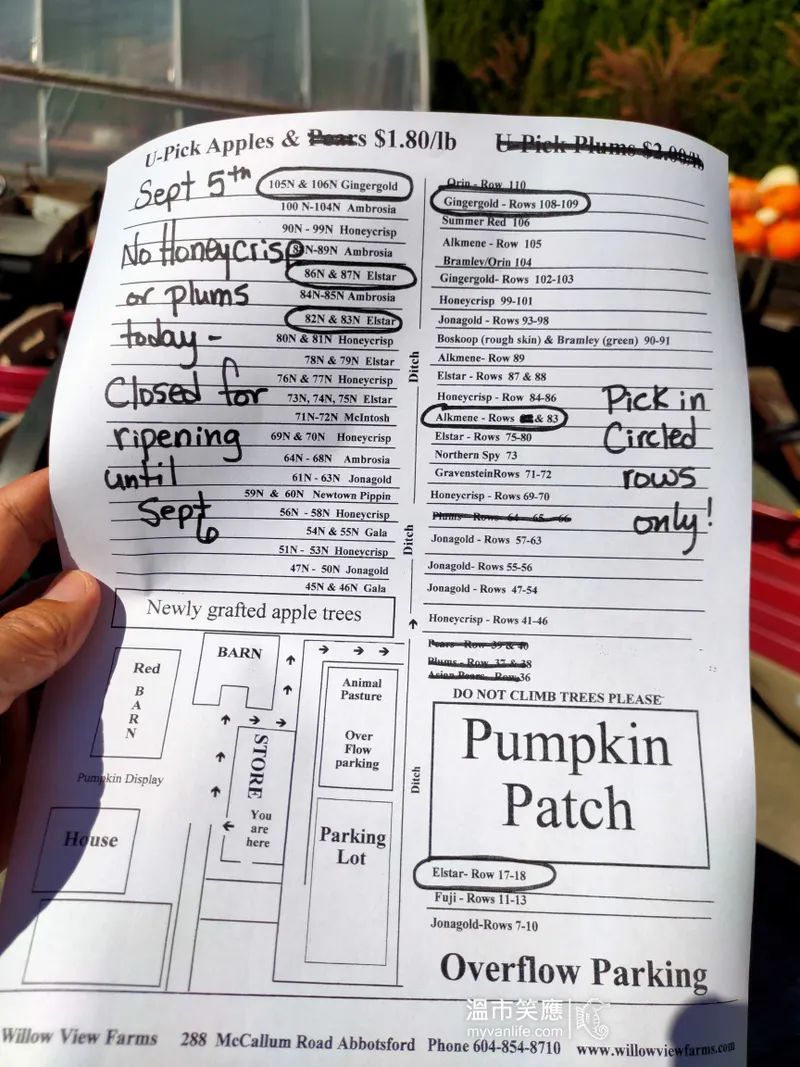 U-Pick Apples & Pears $1.80/lb
U-Pick Plums $2.00/lb
Sept 5th
No Honeycrisp
or plums
today -
Closed for
ripening
until
Sept
6
105N & 106N Gingergold
100 N-104N Ambrosia
90N - 99N Honeycrisp
N-89N Ambrosia
86N & 87N Elstar
84N-85N Ambrosia
82N & 83N Elstar
80N & 81N Honeycrisp
78N & 79N Elstar
76N & 77N Honeycrisp
73N, 74N, 75N Elstar
71N-72N McIntosh
69N & 70N Honeycrisp
64N - 68N Ambrosia
61N - 63N Jonagold
59N & 60N Newtown Pippin
56N - 58N Honeycrisp
54N & 55N Gala
51N - 53N Honeycrisp
47N - 50N Jonagold
45N & 46N Gala
Ditch
Ditch
Ditch
Orin - Row 110
Gingergold - Rows 108-109
Summer Red 106
Alkmene - Row 105
Bramley/Orin 104
Gingergold- Rows 102-103
Honeycrisp 99-101
Jonagold - Rows 93-98
Boskoop (rough skin) & Bramley (green) 90-91
Alkmene- Row 89
Elstar - Rows 87 & 88
Honeycrisp - Row 84-86
Alkmene - Rows & 83
Elstar - Rows 75-80
Northern Spy 73
GravensteinRows 71-72
Honeycrisp - Rows 69-70
Plums - Rows 64 - 65 - 66
Jonagold - Rows 57-63
Jonagold- Rows 55-56
Jonagold - Rows 47-54
Honeycrisp - Rows 41-46
Pears - Row 39 & 40
Plums - Row 37 & 38
Asian Pears - Row 36
Pick in
Circled
rows
only!
Newly grafted apple trees
Red
BARN
Pumpkin Display
House
BARN
STORE
You
are
here
Animal
Pasture
Over
Flow
parking
Parking
Lot
DO NOT CLIMB TREES PLEASE
Pumpkin
Patch
Elstar- Row 17-18
Fuji - Rows 11-13
Jonagold-Rows 7-10
Overflow Parking
溫市笑應
myvanlife.com
Willow View Farms 288 McCallum Road Abbotsford Phone 604-854-8710 www.willowviewfarms.com